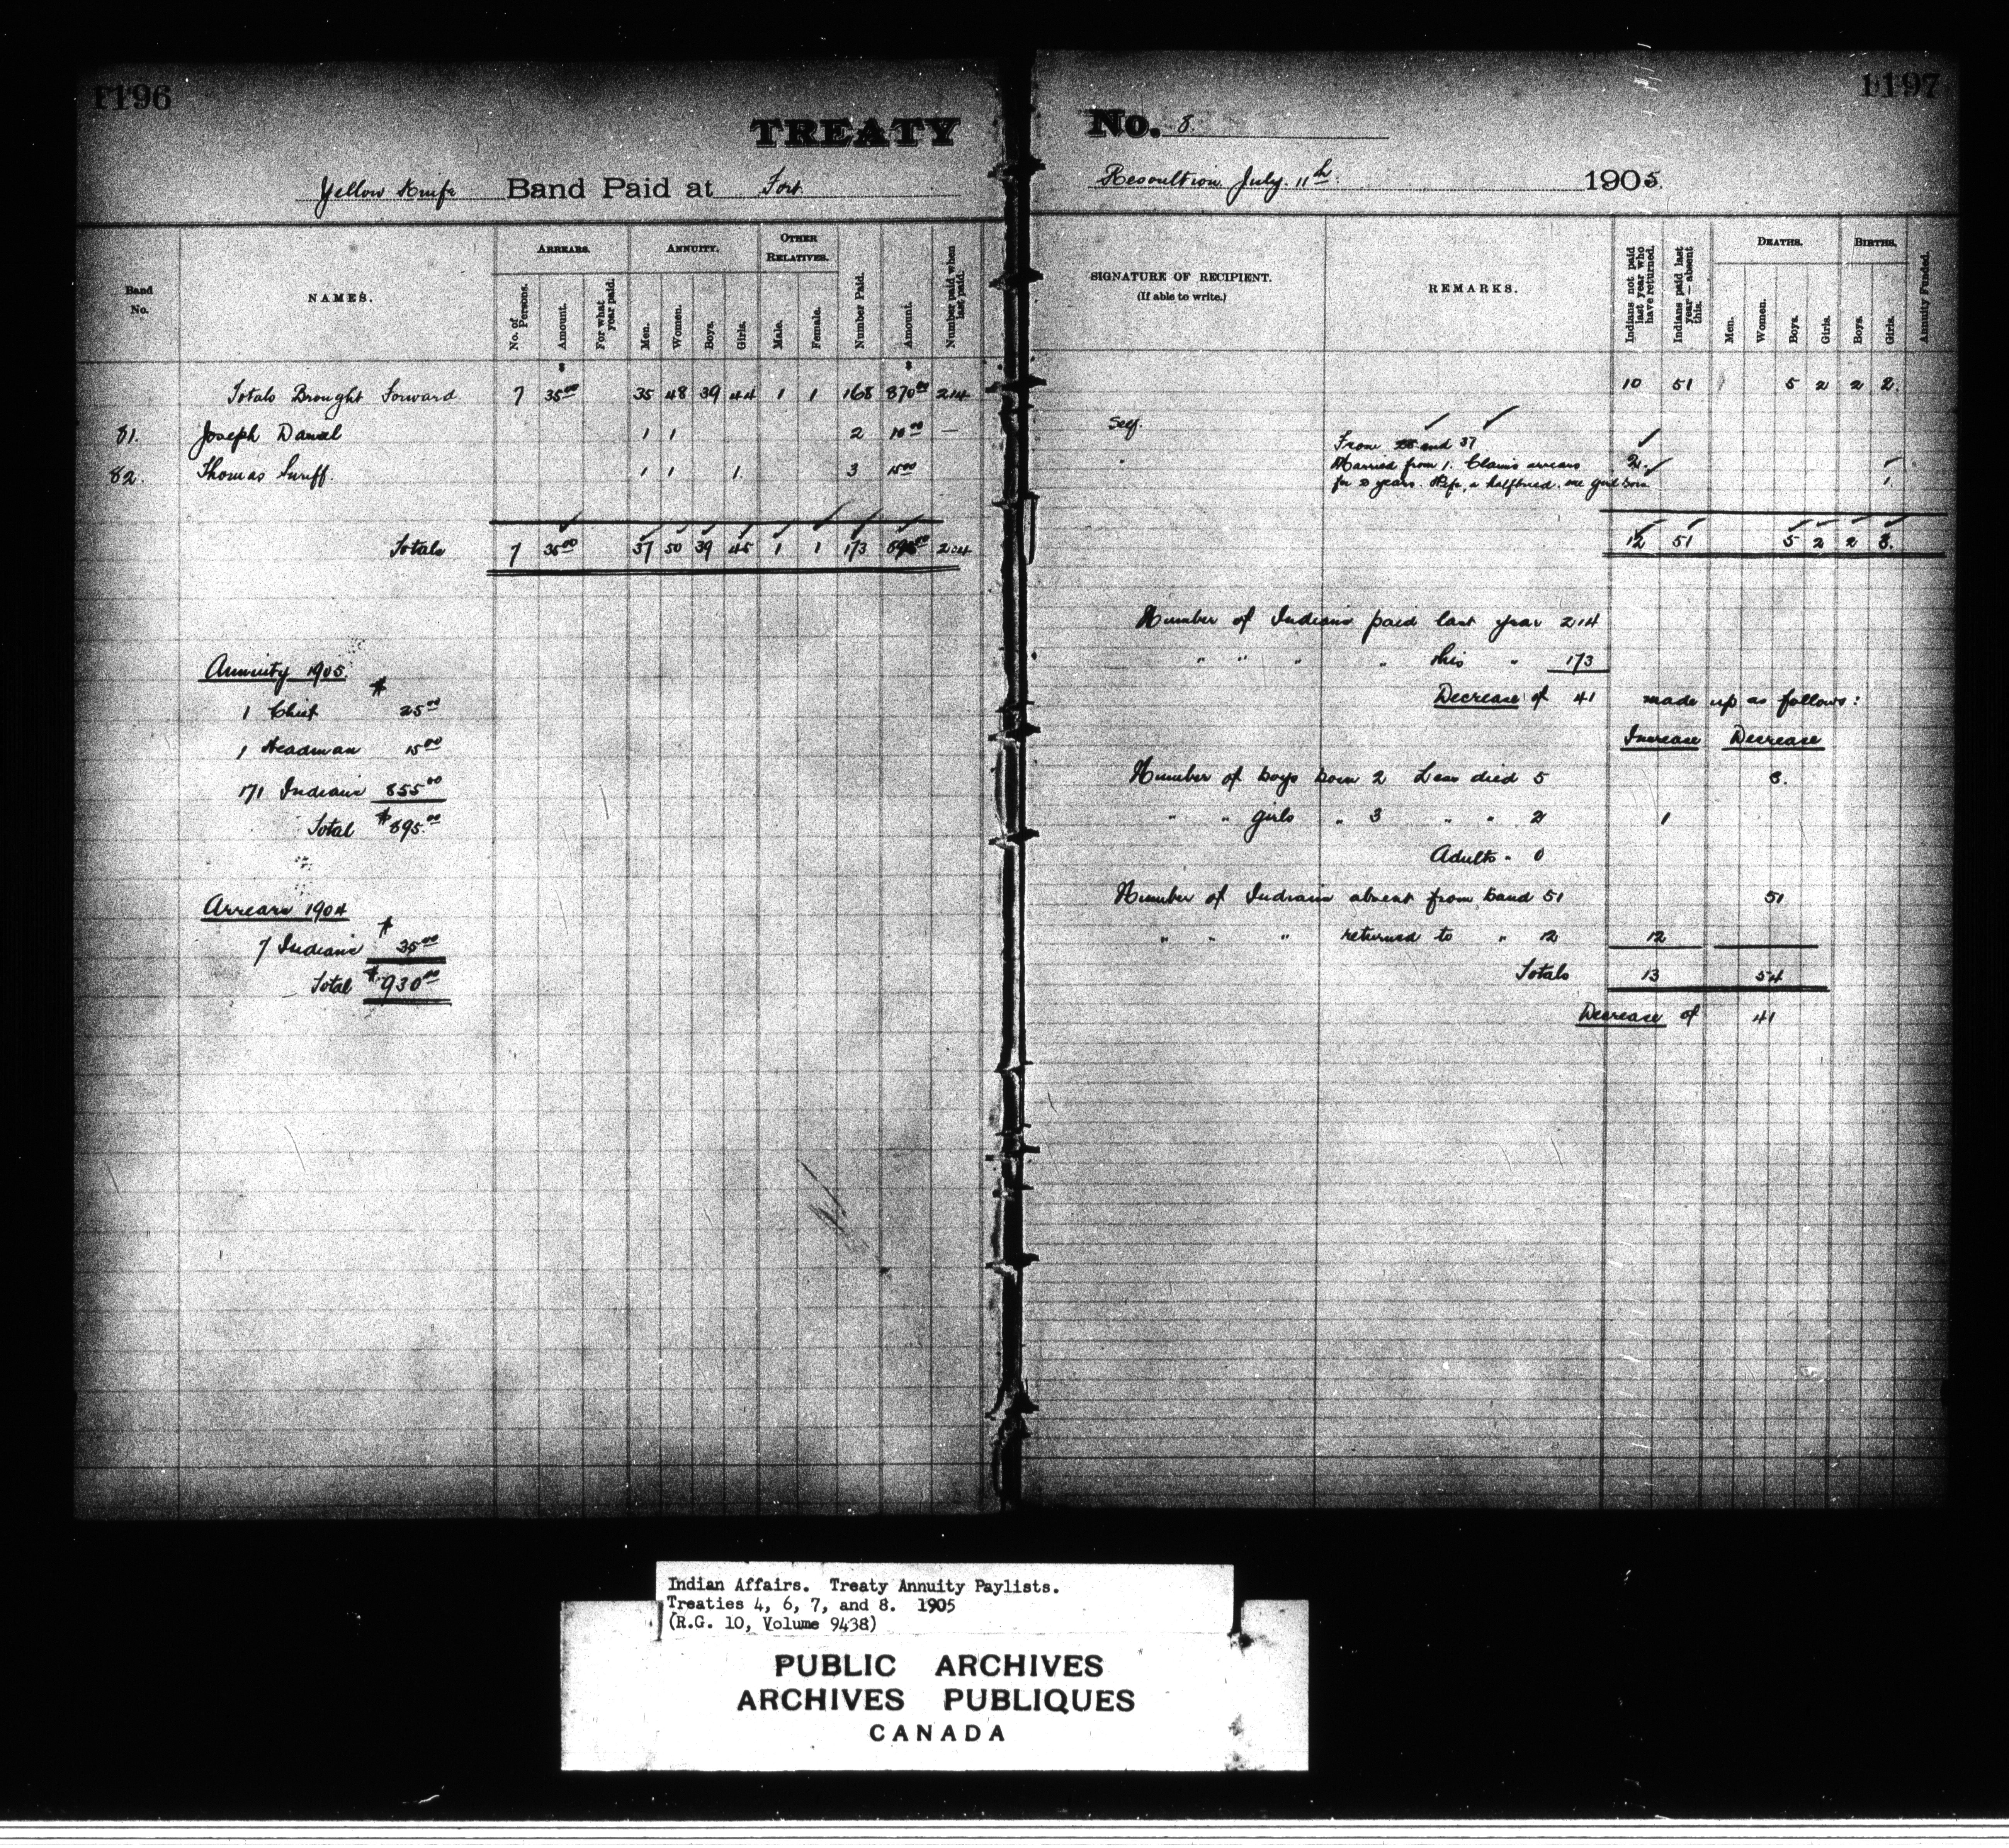 1196
1197
TREATY No. 8.
Yellow Knife Band Paid at Fort Resoultion July 11th 1905.
Band No.
NAMES.
ARREARS.
No. of Persons.
Amount.
For what year paid.
ANNUITY.
Men.
Women.
Boys.
Girls.
OTHER RELATIVES.
Male.
Female.
Number Paid.
Amount.
Number paid when last paid.
SIGNATURE OF RECIPIENT.
(If able to write.)
REMARKS.
Indians not paid last year who have returned.
Indians paid last year — absent this.
DEATHS.
Men.
Women.
Boys.
Girls.
BIRTHS.
Boys.
Girls.
Annuity Funded.
$ $
Totals Brought Forward 7 35 00 35 48 39 44 1 1 168 870 00 214 10 51 5 2 2 2.
81. Joseph Daniel 1 1 2 10 00 — Self. From and 37
82. Thomas 1 1 1. 3 15 00 " Married from 1. Claims arrears 2.
for 2 years. Wife, a halfbreed. one girl born 1.
Totals 7 35 00 37 50 39 45 1 1 173 895 00 214 12 51 5 2 2 3.
Annuity 1905. $
1 Chief 25 00
1 Headman 15 00
171 Indians 855 00
Total $895. 00
Arrears 1904 $
7 Indians 35 00
Total $930 00
Number of Indians paid last year 214
" " " " this " 173
Decrease of 41 made up as follows:
Increase Decrease
Number of boys born 2 Less died 5 3.
" " girls " 3 " " 2 1
Adults " 0
Number of Indians absent from band 51 51
" " " returned to " 12 12
Totals 13 54
Decrease of 41
Indian Affairs. Treaty Annuity Paylists.
Treaties 4, 6, 7, and 8. 1905
(R.G. 10, Volume 9438)
PUBLIC ARCHIVES
ARCHIVES PUBLIQUES
CANADA